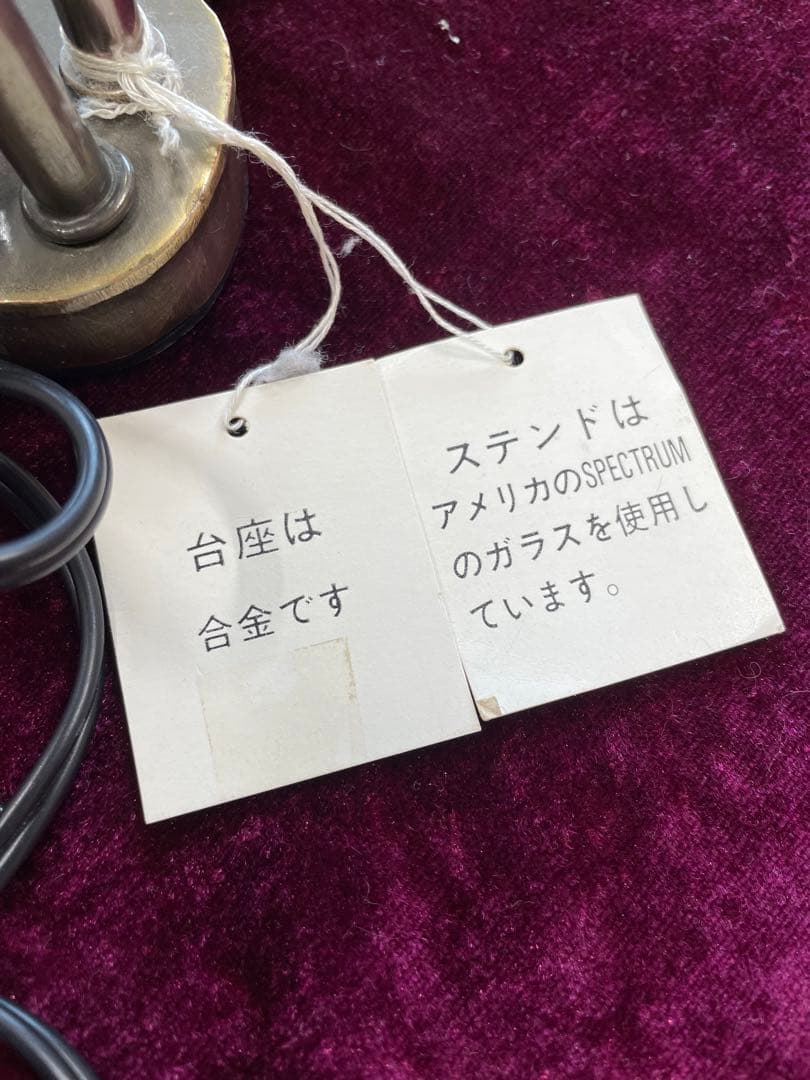 台座は
合金です
ステンドは
アメリカのSPECTRUM
のガラスを使用し
ています。